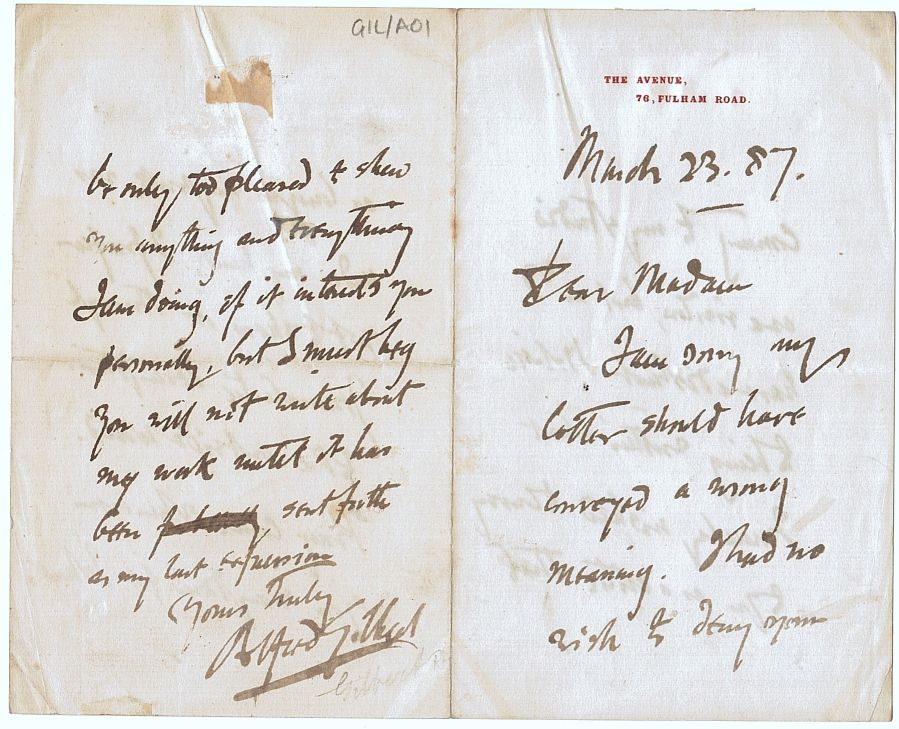 THE AVENUE,
76, FULHAM ROAD.
March 23. 87.
Dear Madam
I am sorry my
letter should have
conveyed a wrong
meaning. I had no
wish to deny your
GIL/A01
be only too pleased to shew
you anything and everything
I am doing, if it interests you
personally, but I must beg
you will not write about
my work until it has
been sent forth
as my last expression
Yours truly
Alfred Gilbert
Gilbert